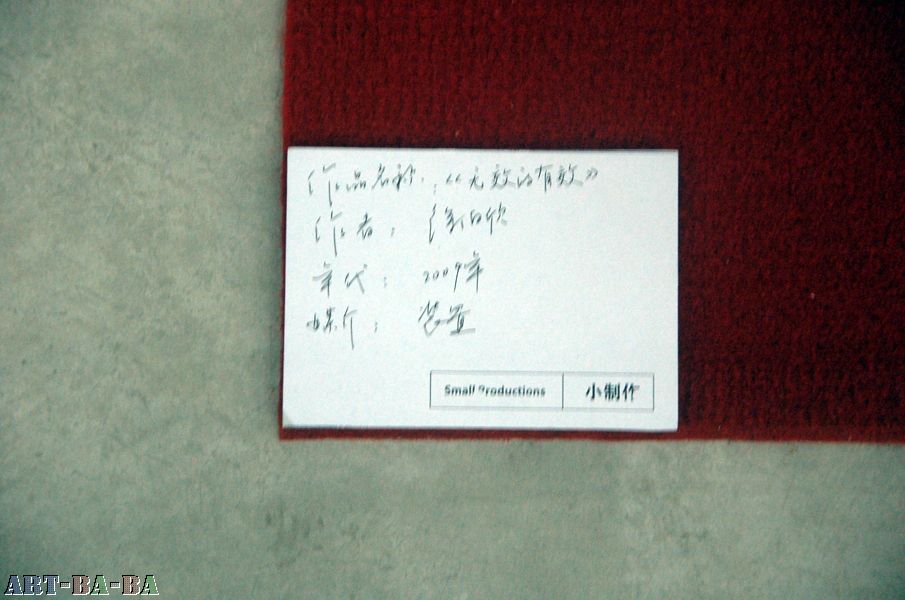 作品名称:《无效的有效》
作者:
年代:2009年
媒介:装置
Small Productions 小制作
ART-BA-BA